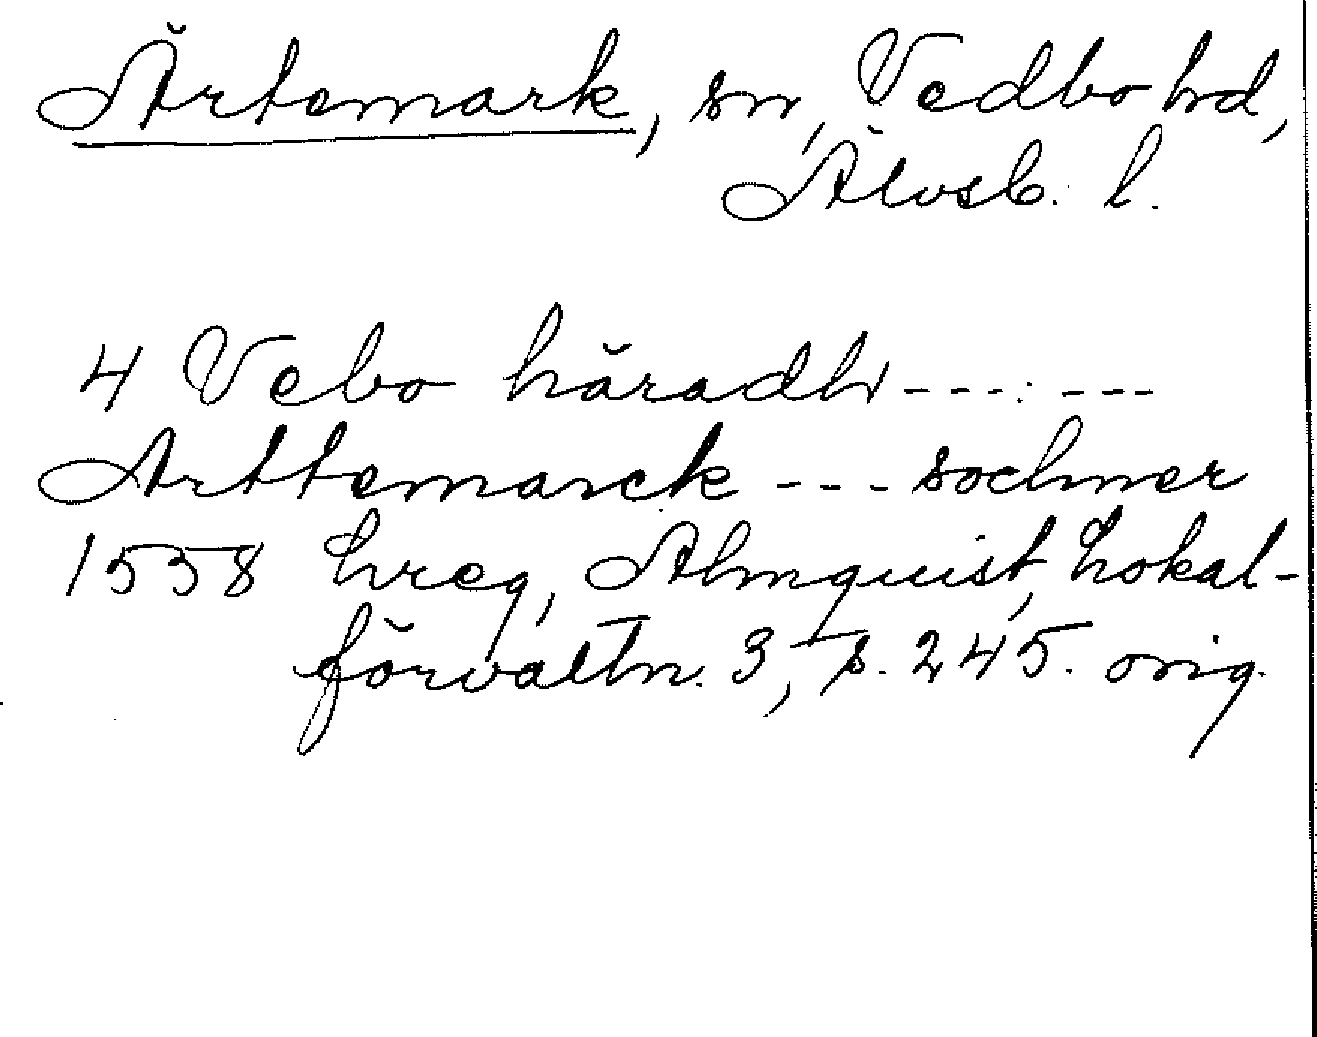 Ärtemark, sn, Vedbo hd,
Älvsb. l.
4 Vebo häradh --- ---
Arttemarck --- sochner
1558 hreg, Almquist, Lokal-
förvaltn. 3, s. 245. orig.